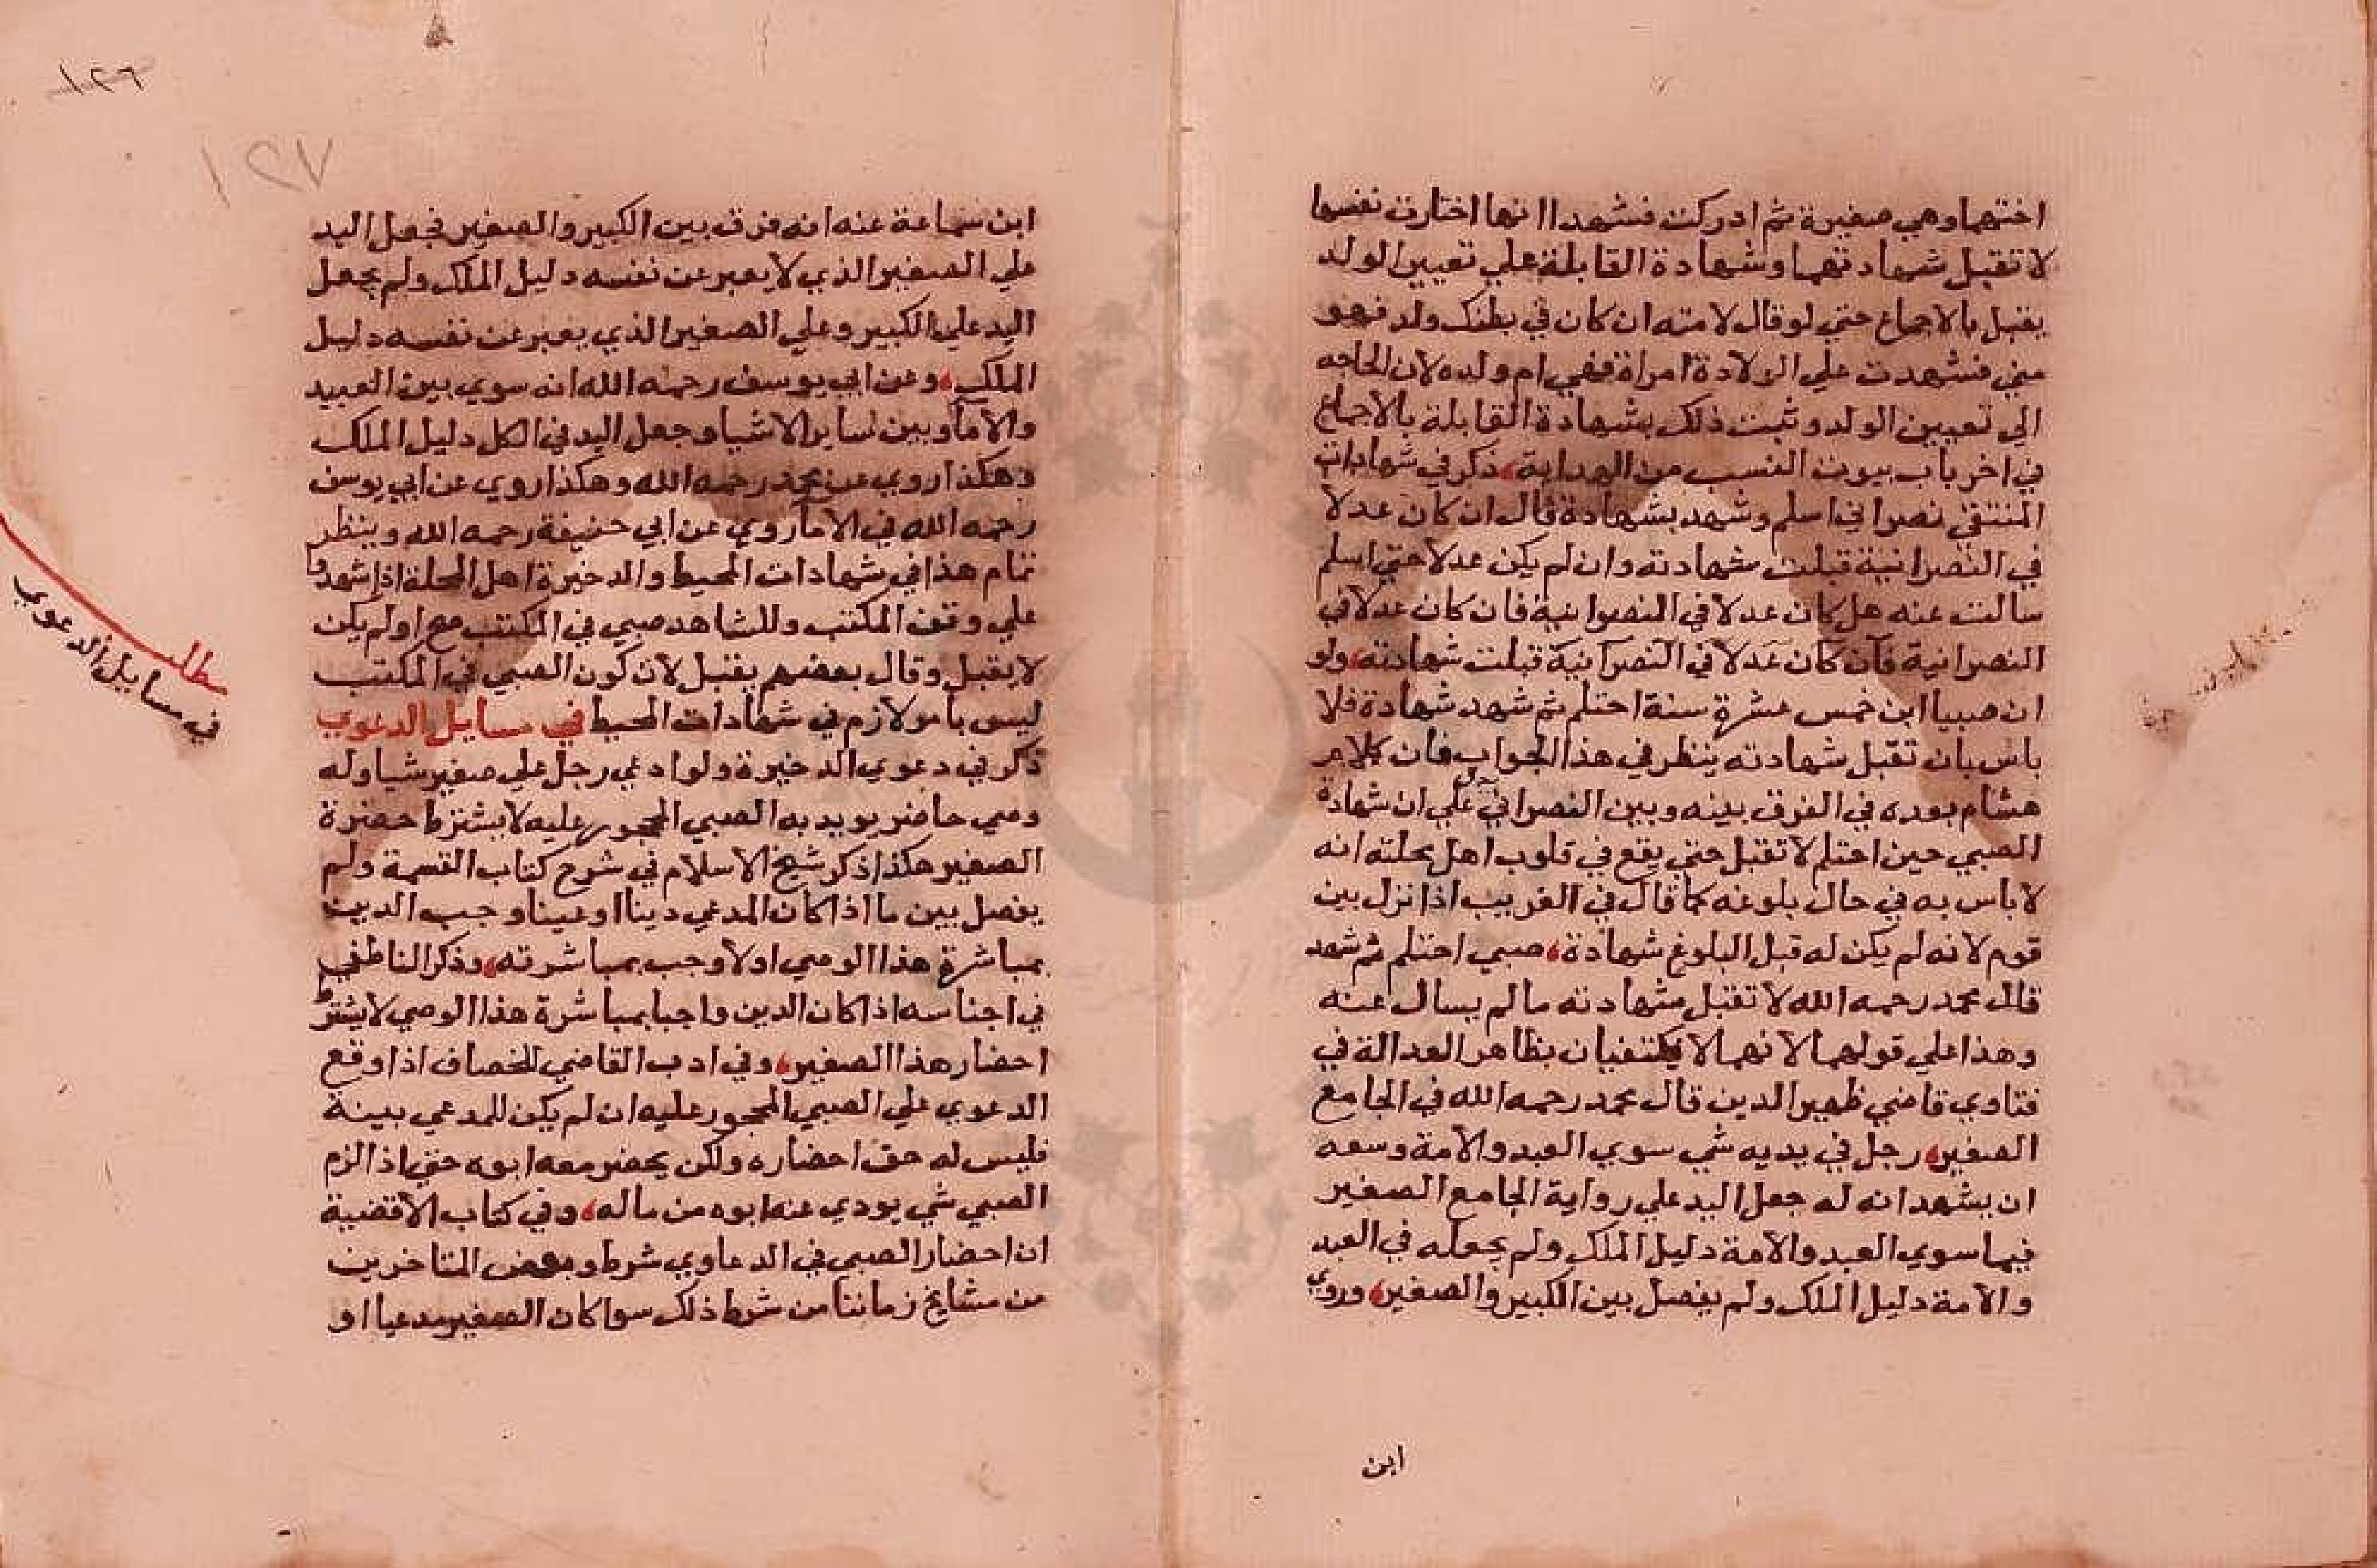 اختهما وهي صغيرة ثم ادركت فشهدا انها اختارت نفسها
لا تقبل شهادتهما وشهادة القابلة علي تعيين الولد
يقبل بالاجماع حتي لو قال لامته ان كان في بطنك ولد فهو
مني فشهدت علي الولادة امراة فهي ام ولده لان الحاجه
الي تعيين الولد وثبت ذلك بشهادة القابلة بالاجماع
في اخر باب بيوت النسب من الهداية، ذكر في شهادات
المنتقي نصراني اسلم وشهد بشهادة قال ان كان عدلا
في النصرانية قبلت شهادته وان لم يكن عدلا حتي اسلم
سالت عنه هل كان عدلا في النصرانية فان كان عدلا في
النصرانية فان كان عدلا في النصرانية قبلت شهادته، ولو
ان صبيا ابن خمس عشرة سنة احتلم ثم شهد شهادة فلا
باس بان تقبل شهادته ينظر في هذا الجواب فان كلام
هشام بوده في الفرق بينه وبين النصراني علي ان شهادة
الصبي حين احتلم لا تقبل حتي يقع في قلوب اهل محلته انه
لا باس به في حال بلوغه كما قال في الغريب اذا نزل بين
قوم لانه لم يكن له قبل البلوغ شهادة، صبي احتلم ثم شهد
قال محمد رحمه الله لا تقبل شهادته ما لم يسال عنه
وهذا علي قولهما لانهما لا يكتفيان بظاهر العدالة في
فتاوي قاضي ظهير الدين قال محمد رحمه الله في الجامع
الصغير، رجل في يديه شي سوي العبد والامة وسعه
ان يشهد انه له جعل اليد علي رواية الجامع الصغير
فيما سوي العبد والامة دليل الملك ولم يجعله في العبد
والامة دليل الملك ولم يفصل بين الكبير والصغير، وروي
ابن
١٢٦
١٢٧
ابن سماعة عنه انه فرق بين الكبير والصغير فجعل اليد
علي الصغير الذي لا يعبر عن نفسه دليل الملك ولم يجعل
اليد علي الكبير وعلي الصغير الذي يعبر عن نفسه دليل
الملك، وعن ابي يوسف رحمه الله انه سوي بين العبيد
والاما وبين ساير الاشيا وجعل اليد في الكل دليل الملك
وهكذا روي عن محمد رحمه الله وهكذا روي عن ابي يوسف
رحمه الله في الاما روي عن ابي حنيفة رحمه الله وينظر
تمام هذا في شهادات المحيط والدخيرة اهل المحلة اذا شهدوا
علي وقف المكتب وللشاهد صبي في المكتب مع او لم يكن
لا يقبل وقال بعضهم يقبل لان كون الصبي في المكتب
ليس بامر لازم في شهادات المحيط في مسايل الدعوي
ذكر في دعوي الدخيرة ولو ادعي رجل علي صغير شيا وله
وصي حاضر يويد به الصبي المحجور عليه لا يشترط حضرة
الصغير هكذا ذكر شيخ الاسلام في شرح كتاب القسمة ولم
يفصل بين ما اذا كان المدعي دينا او عينا وجب الدين
بمباشرة هذا الوصي او لا وجب بمباشرته، وذكر الناطفي
في اجناسه اذا كان الدين واجبا بمباشرة هذا الوصي لا يشترط
احضار هذا الصغير، وفي ادب القاضي للخصاف اذا وقع
الدعوي علي الصبي المحجور عليه ان لم يكن للمدعي بينة
فليس له حق احضاره ولكن يحضر معه ابوه حتي اذا الزم
الصبي شي يودي عنه ابوه من ماله، وفي كتاب الاقضية
ان احضار الصبي في الدعاوي شرط وبعض المتاخرين
من مشايخ زماننا من شرط ذلك سوا كان الصغير مدعيا او
مطلب
في مسايل الدعوي